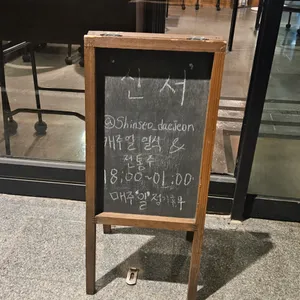 신서
@Shinseo_daejeon
개주일 일식 &
전통주
18:00~01:00
매주 "일" 정기휴무